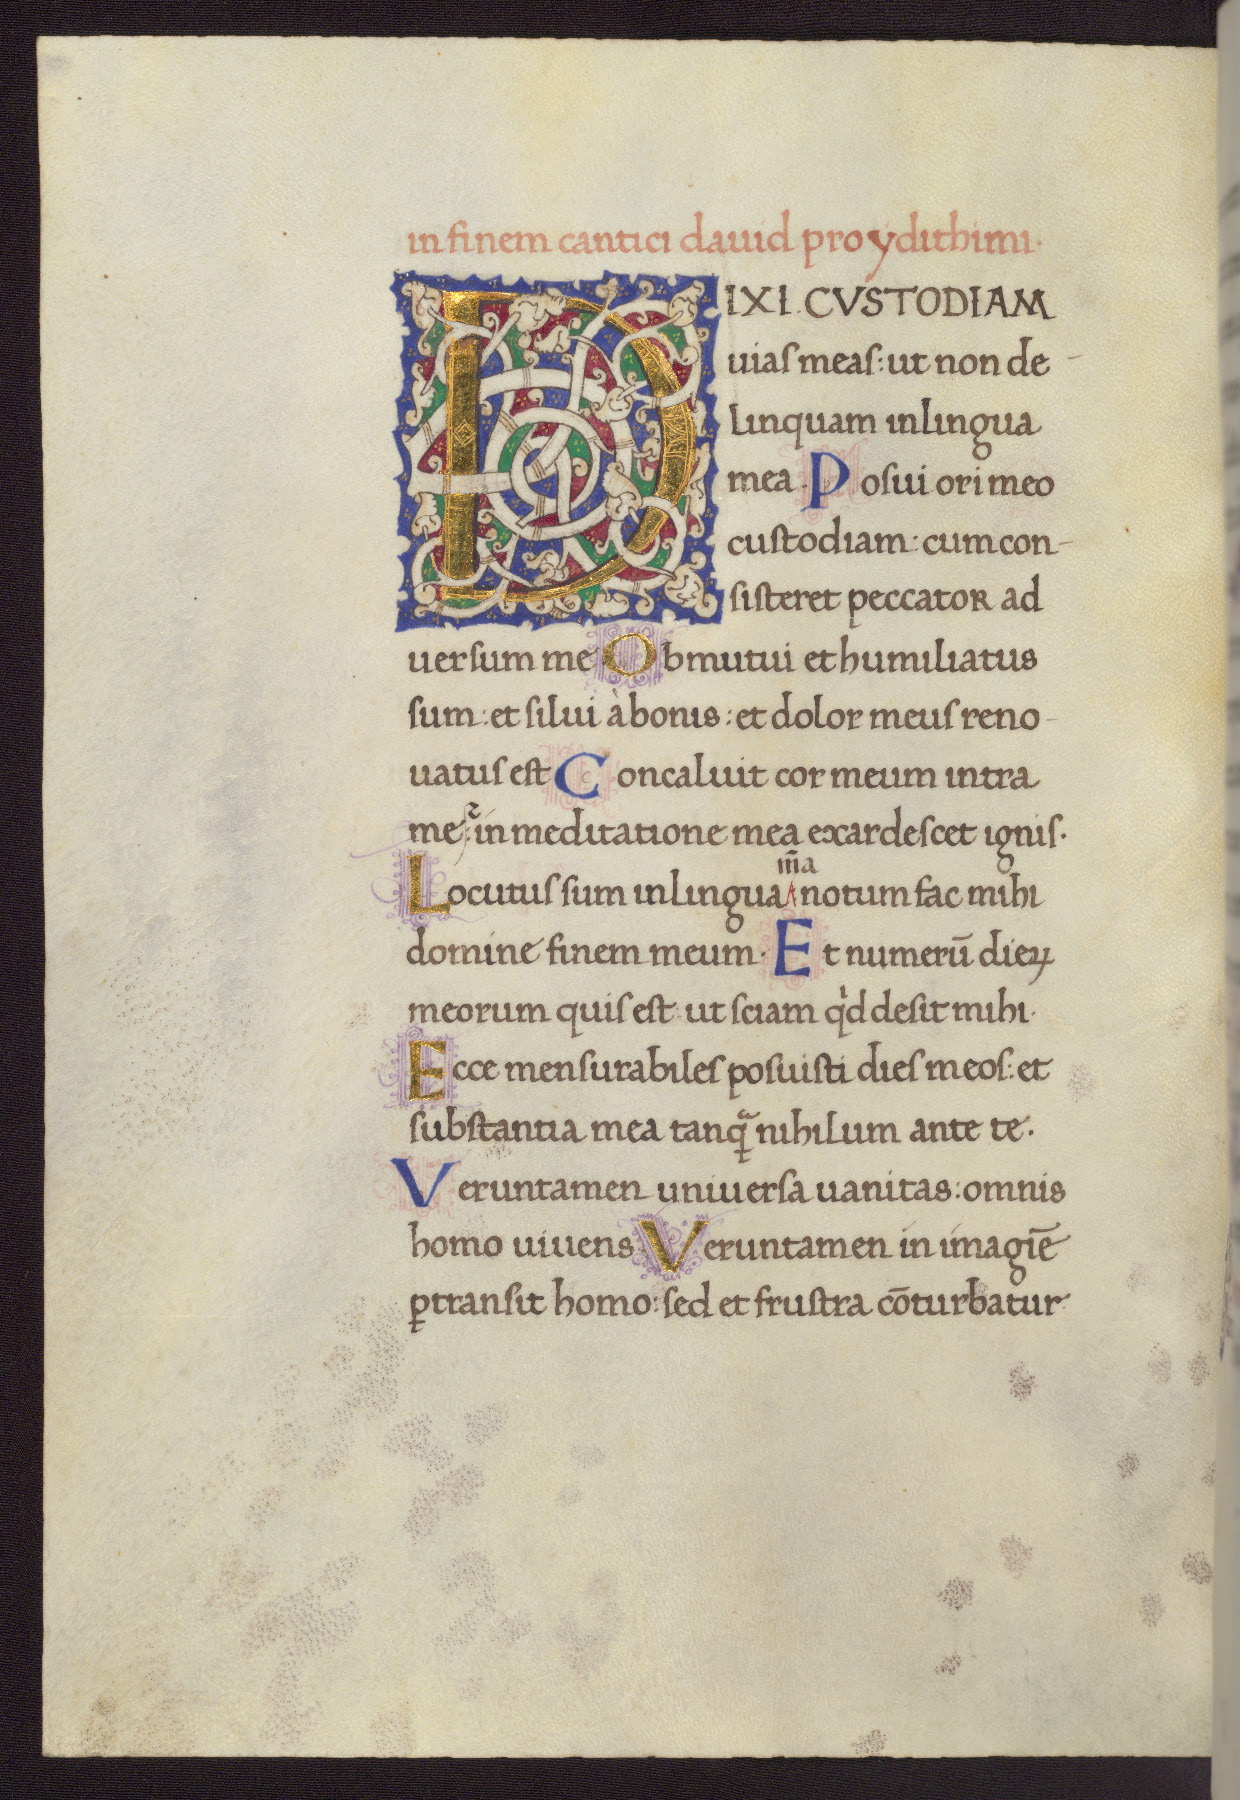 in finem cantici dauid pro ydithimi·
DIXI CVSTODIAM
uias meas: ut non de-
linquam in lingua
mea. Posui ori meo
custodiam: cum con-
sisteret peccator ad
uersum me Obmutui et humiliatus
sum: et silui à bonis: et dolor meus reno-
uatus est Concaluit cor meum intra
me: & in meditatione mea exardescet ignis·
m̄a
Locutus sum in lingua ʌ notum fac mihi
domine finem meum· Et numerū dieꝝ
meorum quis est: ut sciam qͥd desit mihi·
Ecce mensurabiles posuisti dies meos: et
substantia mea tanqᷓ nihilum ante te·
Veruntamen uniuersa uanitas: omnis
homo uiuens Veruntamen in imagiē
ꝑtransit homo: sed et frustra cōturbatur